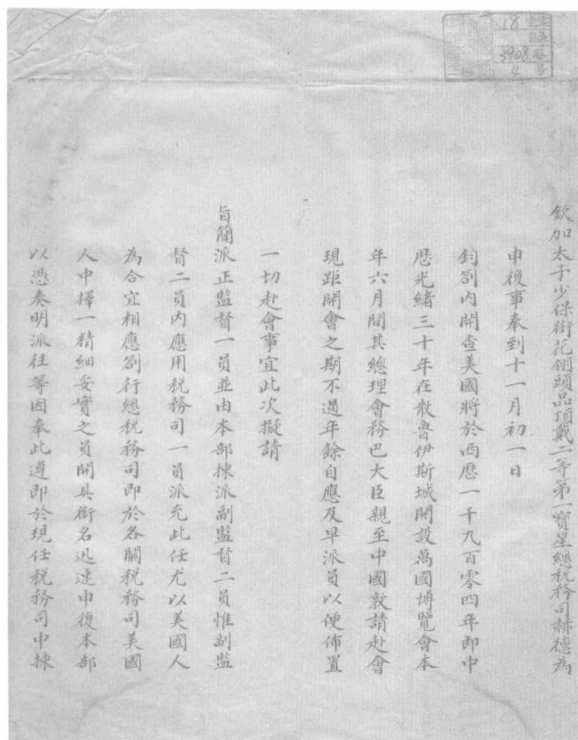 欽加太子少保銜花翎頭品頂戴二等第一寶星總稅務司赫德為
申復事奉到十一月初一日
鈞劄內開查美國將於西歷一千九百零四年即中
歷光緒三十年在散魯伊斯城開設萬國博覽會本
年六月間其總理會務巴大臣親至中國敦請赴會
現距開會之期不過年餘自應及早派員以便佈置
一切赴會事宜此次擬請
旨簡派正監督一員並由本部揀派副監督二員惟副監
督二員內應用稅務司一員派充此任尤以美國人
為合宜相應劄行總稅務司即於各關稅務司美國
人中擇一精細妥實之員開具銜名迅速申復本部
以憑奏明派往等因奉此遵即於現任稅務司中揀
18
3908
4